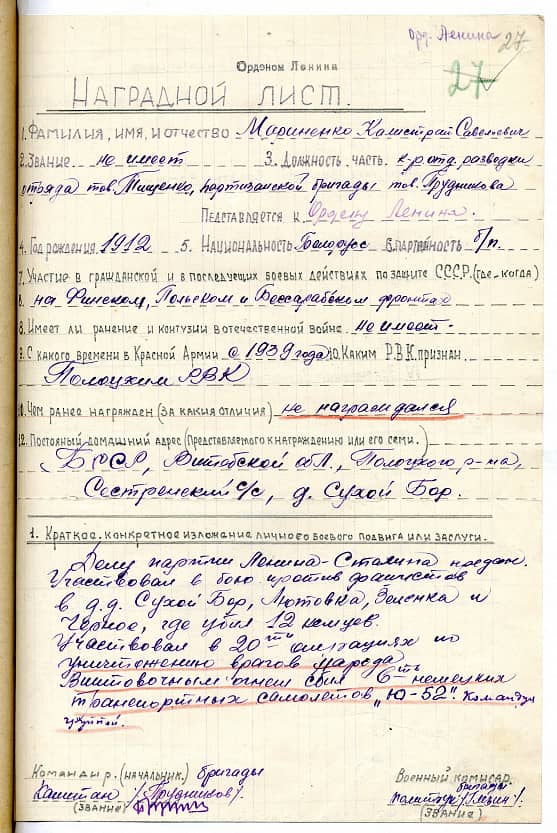 Орд. Ленина
27
27
Орденом Ленина
НАГРАДНОЙ ЛИСТ.
1. Фамилия, имя, и отчество Мариненко Калистрат Савельевич
2. Звание не имеет 3. Должность, часть. к-р отд. разведки
отряда тов. Тищенко, партизанской бригады тов. Прудникова
Педставляется к Ордену Ленина.
4. Год рождения 1912 5. Национальность Белорус 6. партийность б/п
7. Участие в гражданской и в последущих боевых действиях по защите СССР. (где, когда)
на Финском, Польском и Бессарабском фронтах
8. Имеет ли ранение и контузии в отечественной войне. не имеет.
9. С какого времени в Красной Армии с 1939 года 10. Каким Р.В.К. признан.
Полоцким РВК
10. Чем ранее награжден (за какия отличия) не награждался
12. Постояный домашний адрес (представляемого к награждению или его семи.)
БССР, Витебской обл., Полоцкого р-на,
Сестренский с/с, д. Сухой Бор.
1. Краткое, конкретное изложение личного боевого подвига или заслуги.
Делу партии Ленина-Сталина предан.
Участвовал в бою против фашистов
в д.д. Сухой Бор, Лютовка, Зеленка и
Черное, где убил 12 немцев.
Участвовал в 20ти операциях по
уничтожению врагов народа
Винтовочным огнем сбил 6ть немецких
транспортных самолетов „Ю-52“. Командуя
группой.
Командир. (начальник.) бригады
Капитан /Прудников/.
(звание)
Военный комисар.
бригады
политрук
(звание)